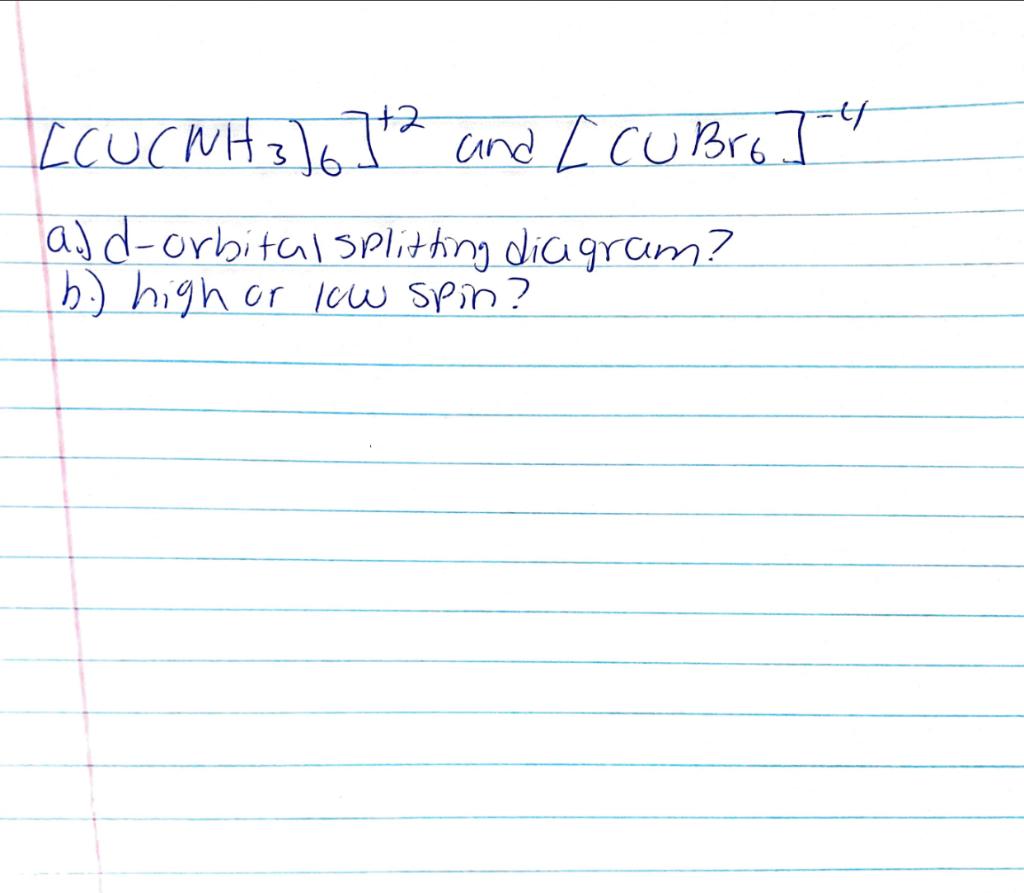 [CU(NH3)6]+2 and [CUBr6]-4
a.) d-orbital splitting diagram?
b.) high or low spin?